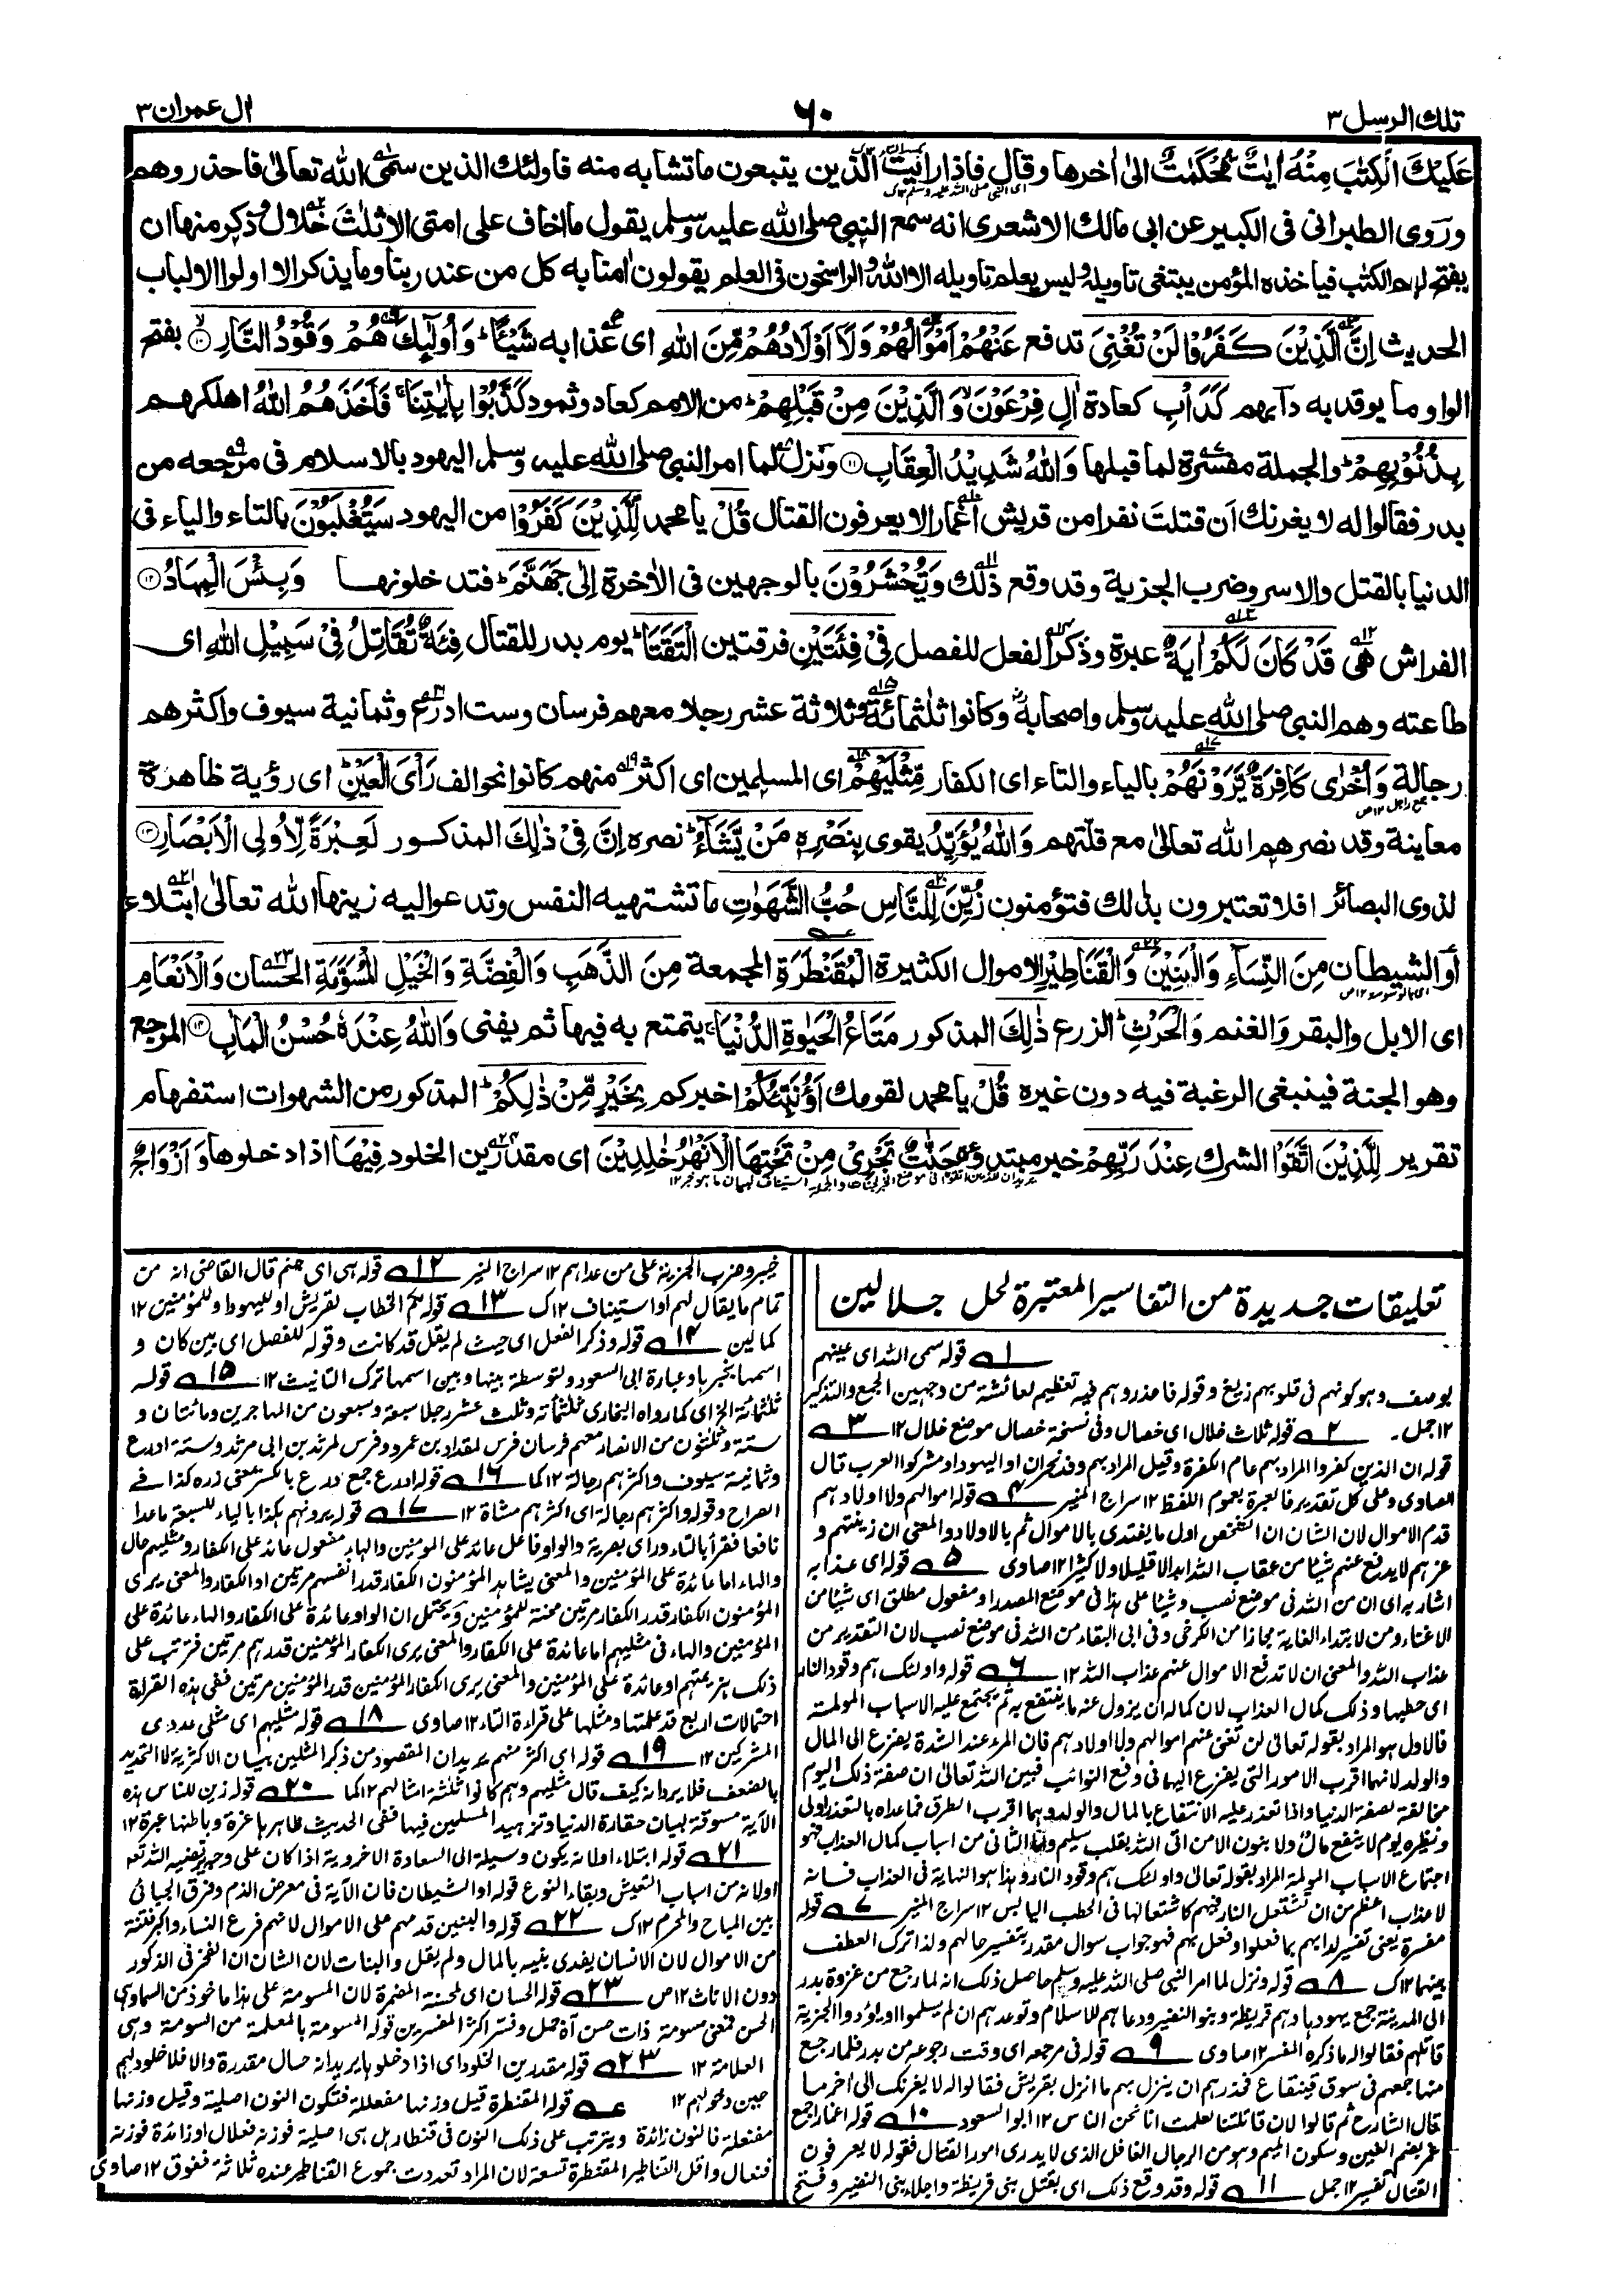 تلك الرسل ٣
٦٠
ال عمران ٣
عَلَيْكَ الْكِتٰبَ مِنْهُ اٰيٰتٌ مُّحْكَمٰتٌ الى اٰخرها وقال فاذا رايت الذين يتبعون ما تشابه منه فاولئك الذين سمى الله تعالى فاحذروهم
وروى الطبرانى فى الكبير عن ابى مالك الاشعرى انه سمع النبى صلى الله عليه وسلم يقول ما اخاف على امتى الا ثلث خلال وذكر منها ان
يفتح لهم الكتب فياخذه المؤمن يبتغى تاويله وليس يعلم تاويله الا الله والراسخون فى العلم يقولون اٰمنا به كل من عند ربنا وما يذكر الا اولوا الالباب
الحديث اِنَّ الَّذِيْنَ كَفَرُوْا لَنْ تُغْنِيَ تدفع عَنْهُمْ اَمْوَالُهُمْ وَلَآ اَوْلَادُهُمْ مِّنَ اللهِ اى عذابه شَيْـًٔا وَاُولٰٓئِكَ هُمْ وَقُوْدُ النَّارِ ۱۰ بفتح
الواو ما يوقد به دأبهم كَدَاْبِ كعادة اٰلِ فِرْعَوْنَ وَالَّذِيْنَ مِنْ قَبْلِهِمْ من الامم كعاد وثمود كَذَّبُوْا بِاٰيٰتِنَا فَاَخَذَهُمُ اللهُ اهلكهم
بِذُنُوْبِهِمْ والجملة مفسرة لما قبلها وَاللهُ شَدِيْدُ الْعِقَابِ ۱۱ ونزل لما امر النبى صلى الله عليه وسلم اليهود بالاسلام فى مرجعه من
بدر فقالوا له لا يغرنك ان قتلت نفرا من قريش اغمارا لا يعرفون القتال قُلْ يا محمد لِّلَّذِيْنَ كَفَرُوْا من اليهود سَتُغْلَبُوْنَ بالتاء والياء فى
الدنيا بالقتل والاسر وضرب الجزية وقد وقع ذلك وَتُحْشَرُوْنَ بالوجهين فى الاٰخرة اِلٰى جَهَنَّمَ فتدخلونها وَبِئْسَ الْمِهَادُ ۱۲
الفراش هى قَدْ كَانَ لَكُمْ اٰيَةٌ عبرة وذكر الفعل للفصل فِيْ فِئَتَيْنِ فرقتين الْتَقَتَا يوم بدر للقتال فِئَةٌ تُقَاتِلُ فِيْ سَبِيْلِ اللهِ اى
طاعته وهم النبى صلى الله عليه وسلم واصحابه وكانوا ثلثمائة وثلاثة عشر رجلا معهم فرسان وست ادرع وثمانية سيوف واكثرهم
رجالة وَاُخْرٰى كَافِرَةٌ يَّرَوْنَهُمْ بالياء والتاء اى الكفار مِّثْلَيْهِمْ اى المسلمين اى اكثر منهم كانوا نحو الف رَاْيَ الْعَيْنِ اى رؤية ظاهرة
معاينة وقد نصرهم الله تعالى مع قلتهم وَاللهُ يُؤَيِّدُ يقوى بِنَصْرِهٖ مَنْ يَّشَآءُ نصره اِنَّ فِيْ ذٰلِكَ المذكور لَعِبْرَةً لِّاُولِي الْاَبْصَارِ ۱۳
لذوى البصائر افلا تعتبرون بذلك فتؤمنون زُيِّنَ لِلنَّاسِ حُبُّ الشَّهَوٰتِ ما تشتهيه النفس وتدعو اليه زينها الله تعالى ابتلاء
او الشيطان مِنَ النِّسَآءِ وَالْبَنِيْنَ وَالْقَنَاطِيْرِ الاموال الكثيرة الْمُقَنْطَرَةِ المجمعة مِنَ الذَّهَبِ وَالْفِضَّةِ وَالْخَيْلِ الْمُسَوَّمَةِ الحسان وَالْاَنْعَامِ
اى الابل والبقر والغنم وَالْحَرْثِ الزرع ذٰلِكَ المذكور مَتَاعُ الْحَيٰوةِ الدُّنْيَا يتمتع به فيها ثم يفنى وَاللهُ عِنْدَهٗ حُسْنُ الْمَاٰبِ ۱۴ المرجع
وهو الجنة فينبغى الرغبة فيه دون غيره قُلْ يا محمد لقومك اَؤُنَبِّئُكُمْ اخبركم بِخَيْرٍ مِّنْ ذٰلِكُمْ المذكور من الشهوات استفهام
تقرير لِلَّذِيْنَ اتَّقَوْا الشرك عِنْدَ رَبِّهِمْ خبر مبتدؤه جَنّٰتٌ تَجْرِيْ مِنْ تَحْتِهَا الْاَنْهٰرُ خٰلِدِيْنَ اى مقدرين الخلود فِيْهَا اذا دخلوها وَاَزْوَاجٌ
تعليقات جديدة من التفاسير المعتبرة لحل جلالين
١ قوله سمى الله اى عينهم
بوصف وهو كونهم فى قلوبهم زيغ وقوله فاحذروهم فيه تعظيم لعائشة من وجهين الجمع والتذكير
١٢ جمل۔ ٢ قوله ثلاث خلال اى خصال وفى نسخة خصال موضع خلال ١٢ ٣
قوله ان الذين كفروا المراد بهم عام الكفرة وقيل المراد بهم وفد نجران او اليهود او مشركوا العرب قال
الصاوى وعلى كل تقدير فالعبرة بعموم اللفظ ١٢ سراج المنير ٤ قوله اموالهم ولا اولادهم
قدم الاموال لان الشان ان الشخص اول ما يفتدى بالاموال ثم بالاولاد والمعنى ان زينتهم و
عزهم لا يدفع عنهم شيئا من عقاب الله ابدا لا قليلا ولا كثيرا ١٢ صاوى ٥ قوله اى عذابه
اشار به اى ان من الله فى موضع نصب وشيئا على هذا فى موضع المصدر او مفعول مطلق اى شيئا من
الاغناء ومن لابتداء الغاية مجازا من الكرخى وفى ابى البقاء من الله فى موضع نصب لان التقدير من
عذاب الله والمعنى ان لا تدفع الاموال عنهم عذاب الله ١٢ ٦ قوله واولئك هم وقود النار
اى حطبها وذلك كمال العذاب لان كماله ان يزول عنه ما ينتفع به ثم يجتمع عليه الاسباب المولمة
فالاول هو المراد بقوله تعالى لن تغنى عنهم اموالهم ولا اولادهم فان المرء عند الشدة يفزع الى المال
والولد لانهما اقرب الامور التى يفزع اليها فى دفع النوائب فبين الله تعالى ان صفة ذلك اليوم
مخالفة لصفة الدنيا واذا تعذر عليه الانتفاع بالمال والولد وهما اقرب الطرق فما عداه بالتعذر اولى
ونظيره يوم لا ينفع مال ولا بنون الا من اتى الله بقلب سليم واما الثانى من اسباب كمال العذاب فهو
اجتماع الاسباب المولمة المراد بقوله تعالى واولئك هم وقود النار وهذا هو النهاية فى العذاب فانه
لا عذاب اعظم من ان تشتعل النار فيهم كاشتعالها فى الحطب اليابس ١٢ سراج المنير ٧ قوله
مفسرة يعنى تفسير لدابهم بما فعلوا وفعل بهم فهو جواب سوال مقدر بتفسير حالهم ولذا ترك العطف
بينهما ١٢ ك ٨ قوله ونزل لما امر النبى صلى الله عليه وسلم حاصل ذلك انه لما رجع من غزوة بدر
الى المدينة جمع يهودها وهم قريظة وبنو النضير ودعاهم للاسلام وتوعدهم ان لم يسلموا او يؤدوا الجزية
قاتلهم فقالوا له ما ذكره المفسر ١٢ صاوى ٩ قوله فى مرجعه اى وقت رجوعه من بدر فلما رجع
منها جمعهم فى سوق قينقاع فحذرهم ان ينزل بهم ما انزل بقريش فقالوا له لا يغرنك الى اخر ما
قال الشارح ثم قالوا لان قاتلتنا لعلمت انا نحن الناس ١٢ ابو السعود ١٠ قوله اغمارا جمع
غمر بضم الغين وسكون الميم وهو من الرجال الغافل الذى لا يدرى امور القتال فقوله لا يعرفون
القتال تفسير ١٢ جمل ١١ قوله وقد وقع ذلك اى بقتل بنى قريظة واجلاء بنى النضير وفتح
خيبر وضرب الجزية على من عداهم ١٢ سراج المنير ١٢ قوله هى اى جهنم قال القاضى انه من
تمام ما يقال لهم او استيناف ١٢ ك ١٣ قوله لكم الخطاب لقريش او لليهود او للمؤمنين ١٢
كمالين ١٤ قوله وذكر الفعل اى حيث لم يقل قد كانت وقوله للفصل اى بين كان و
اسمها بخبرها وعبارة ابى السعود ولتوسطه بينها وبين اسمها ترك التانيث ١٢ ١٥ قوله
ثلثمائة الخ اى كما رواه البخارى ثلثمائة وثلث عشر رجلا سبعة وسبعون من المهاجرين ومائتان و
ستة وثلثون من الانصار معهم فرسان فرس لمقداد بن عمرو وفرس لمرثد بن ابى مرثد وستة ادرع
وثمانية سيوف واكثرهم رجالة ١٢ كما ١٦ قوله ادرع جمع درع بالكسر بمعنى زره كذا فى
الصراح وقوله واكثرهم رجالة اى اكثرهم مشاة ١٢ ١٧ قوله يرونهم هكذا بالياء للسبعة ما عدا
نافعا فقرأ بالتاء وراى بصرية والواو فاعل عائد على المومنين والهاء مفعول عائد على الكفار ومثليهم حال
والهاء اما عائدة على المؤمنين والمعنى يشاهد المؤمنون الكفار قدر انفسهم مرتين او الكفار والمعنى يرى
المؤمنون الكفار قدر الكفار مرتين محنة للمؤمنين ويحتمل ان الواو عائدة على الكفار والهاء عائدة على
المؤمنين والهاء فى مثليهم اما عائدة على الكفار والمعنى يرى الكفار المؤمنين قدرهم مرتين فترتب على
ذلك هزيمتهم او عائدة على المؤمنين والمعنى يرى الكفار المؤمنين قدر المؤمنين مرتين ففى هذه القراءة
احتمالات اربع قد علمتها ومثلها على قراءة التاء ١٢ صاوى ١٨ قوله مثليهم اى مثلى عددى
المشركين ١٢ ١٩ قوله اى اكثر منهم يريد ان المقصود من ذكر المثلين بيان الاكثرية لا التحديد
بالضعف فلا يرد انه كيف قال مثليهم وهم كانوا ثلثة امثالهم ١٢ كما ٢٠ قوله زين للناس هذه
الآية مسوقة لبيان حقارة الدنيا وتزهيد المسلمين فيها ففى الحديث ظاهرها غرة وباطنها عبرة ١٢
٢١ قوله ابتلاء اولانه يكون وسيلة الى السعادة الاخروية اذا كان على وجه يرتضيه الله تعه
اولانه من اسباب التعيش وبقاء النوع قوله او الشيطان فان الآية فى معرض الذم وفرق الجبائى
بين المباح والمحرم ١٢ ك ٢٢ قوله والبنين قدمهم على الاموال لانهم فرع النساء واكبر فتنة
من الاموال لان الانسان يفدى بنيه بالمال ولم يقل والبنات لان الشان ان الفخر فى الذكور
دون الاناث ١٢ ص ٢٣ قوله الحسان اى لحسنة المضمرة لان المسومة على هذا ماخوذ من السما وهى
الحسن فمعنى مسومة ذات حسن اه جمل وفسر اكثر المفسرين قوله المسومة بالمعلمة من السومة وهى
العلامة ١٢ ٢٤ قوله مقدرين الخلود اى اذا دخلوها يريد انه حال مقدرة والا فلا خلود لهم
حين دخولهم ١٢ عه قوله المقنطرة قيل وزنها مفعللة فتكون النون اصلية وقيل وزنها
مفنعلة فالنون زائدة ويترتب على ذلك النون فى قنطار هل هى اصلية فوزنه فعلال او زائدة فوزنه
فنعال واقل القناطير المقنطرة تسعة لان المراد تعددت جموع القناطير عنده ثلاثة ففوق ١٢ صاوى